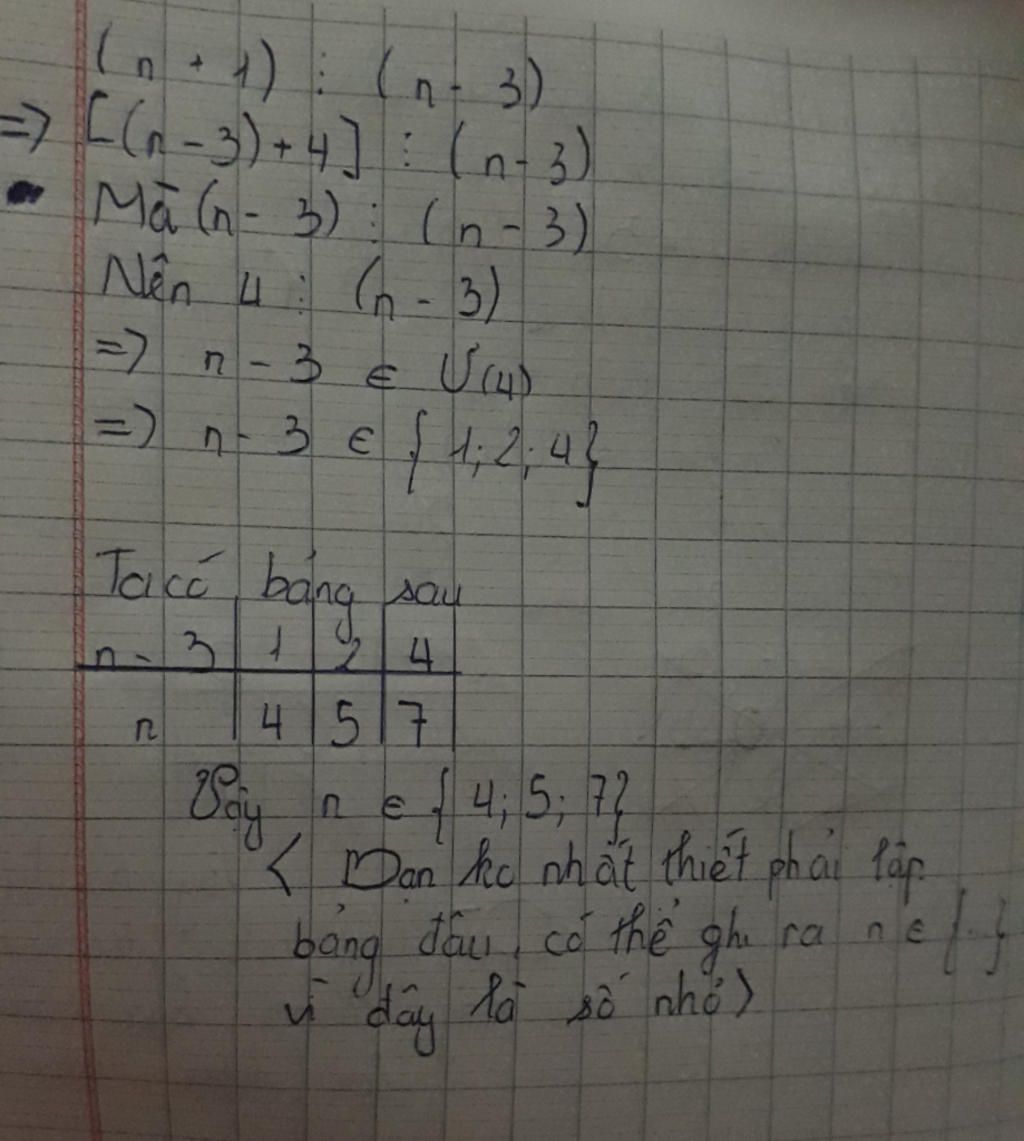 (n + 1) ⋮ (n - 3)
=> [(n - 3) + 4] ⋮ (n - 3)
Mà (n - 3) ⋮ (n - 3)
Nên 4 ⋮ (n - 3)
=> n - 3 ∈ Ư(4)
=> n - 3 ∈ {1; 2; 4}
Ta có bảng sau
n - 3 | 1 | 2 | 4
n | 4 | 5 | 7
Vậy n ∈ {4; 5; 7}
( Bạn ko nhất thiết phải lập
bảng đâu, có thể ghi ra n ∈ {..}
vì đây là số nhỏ)